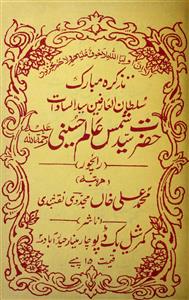 تذکرہ مبارک
سلطان العارفین سید السادات
حضرت سید شمس عالم حسینی رحمۃ اللہ علیہ
(رائچور)
مرتبہ
محمد علی خاں مجددی نقشبندی
ناشر
کمرشیل بک ڈپو چار مینار حیدرآباد
قیمت ۱۵ پیسے